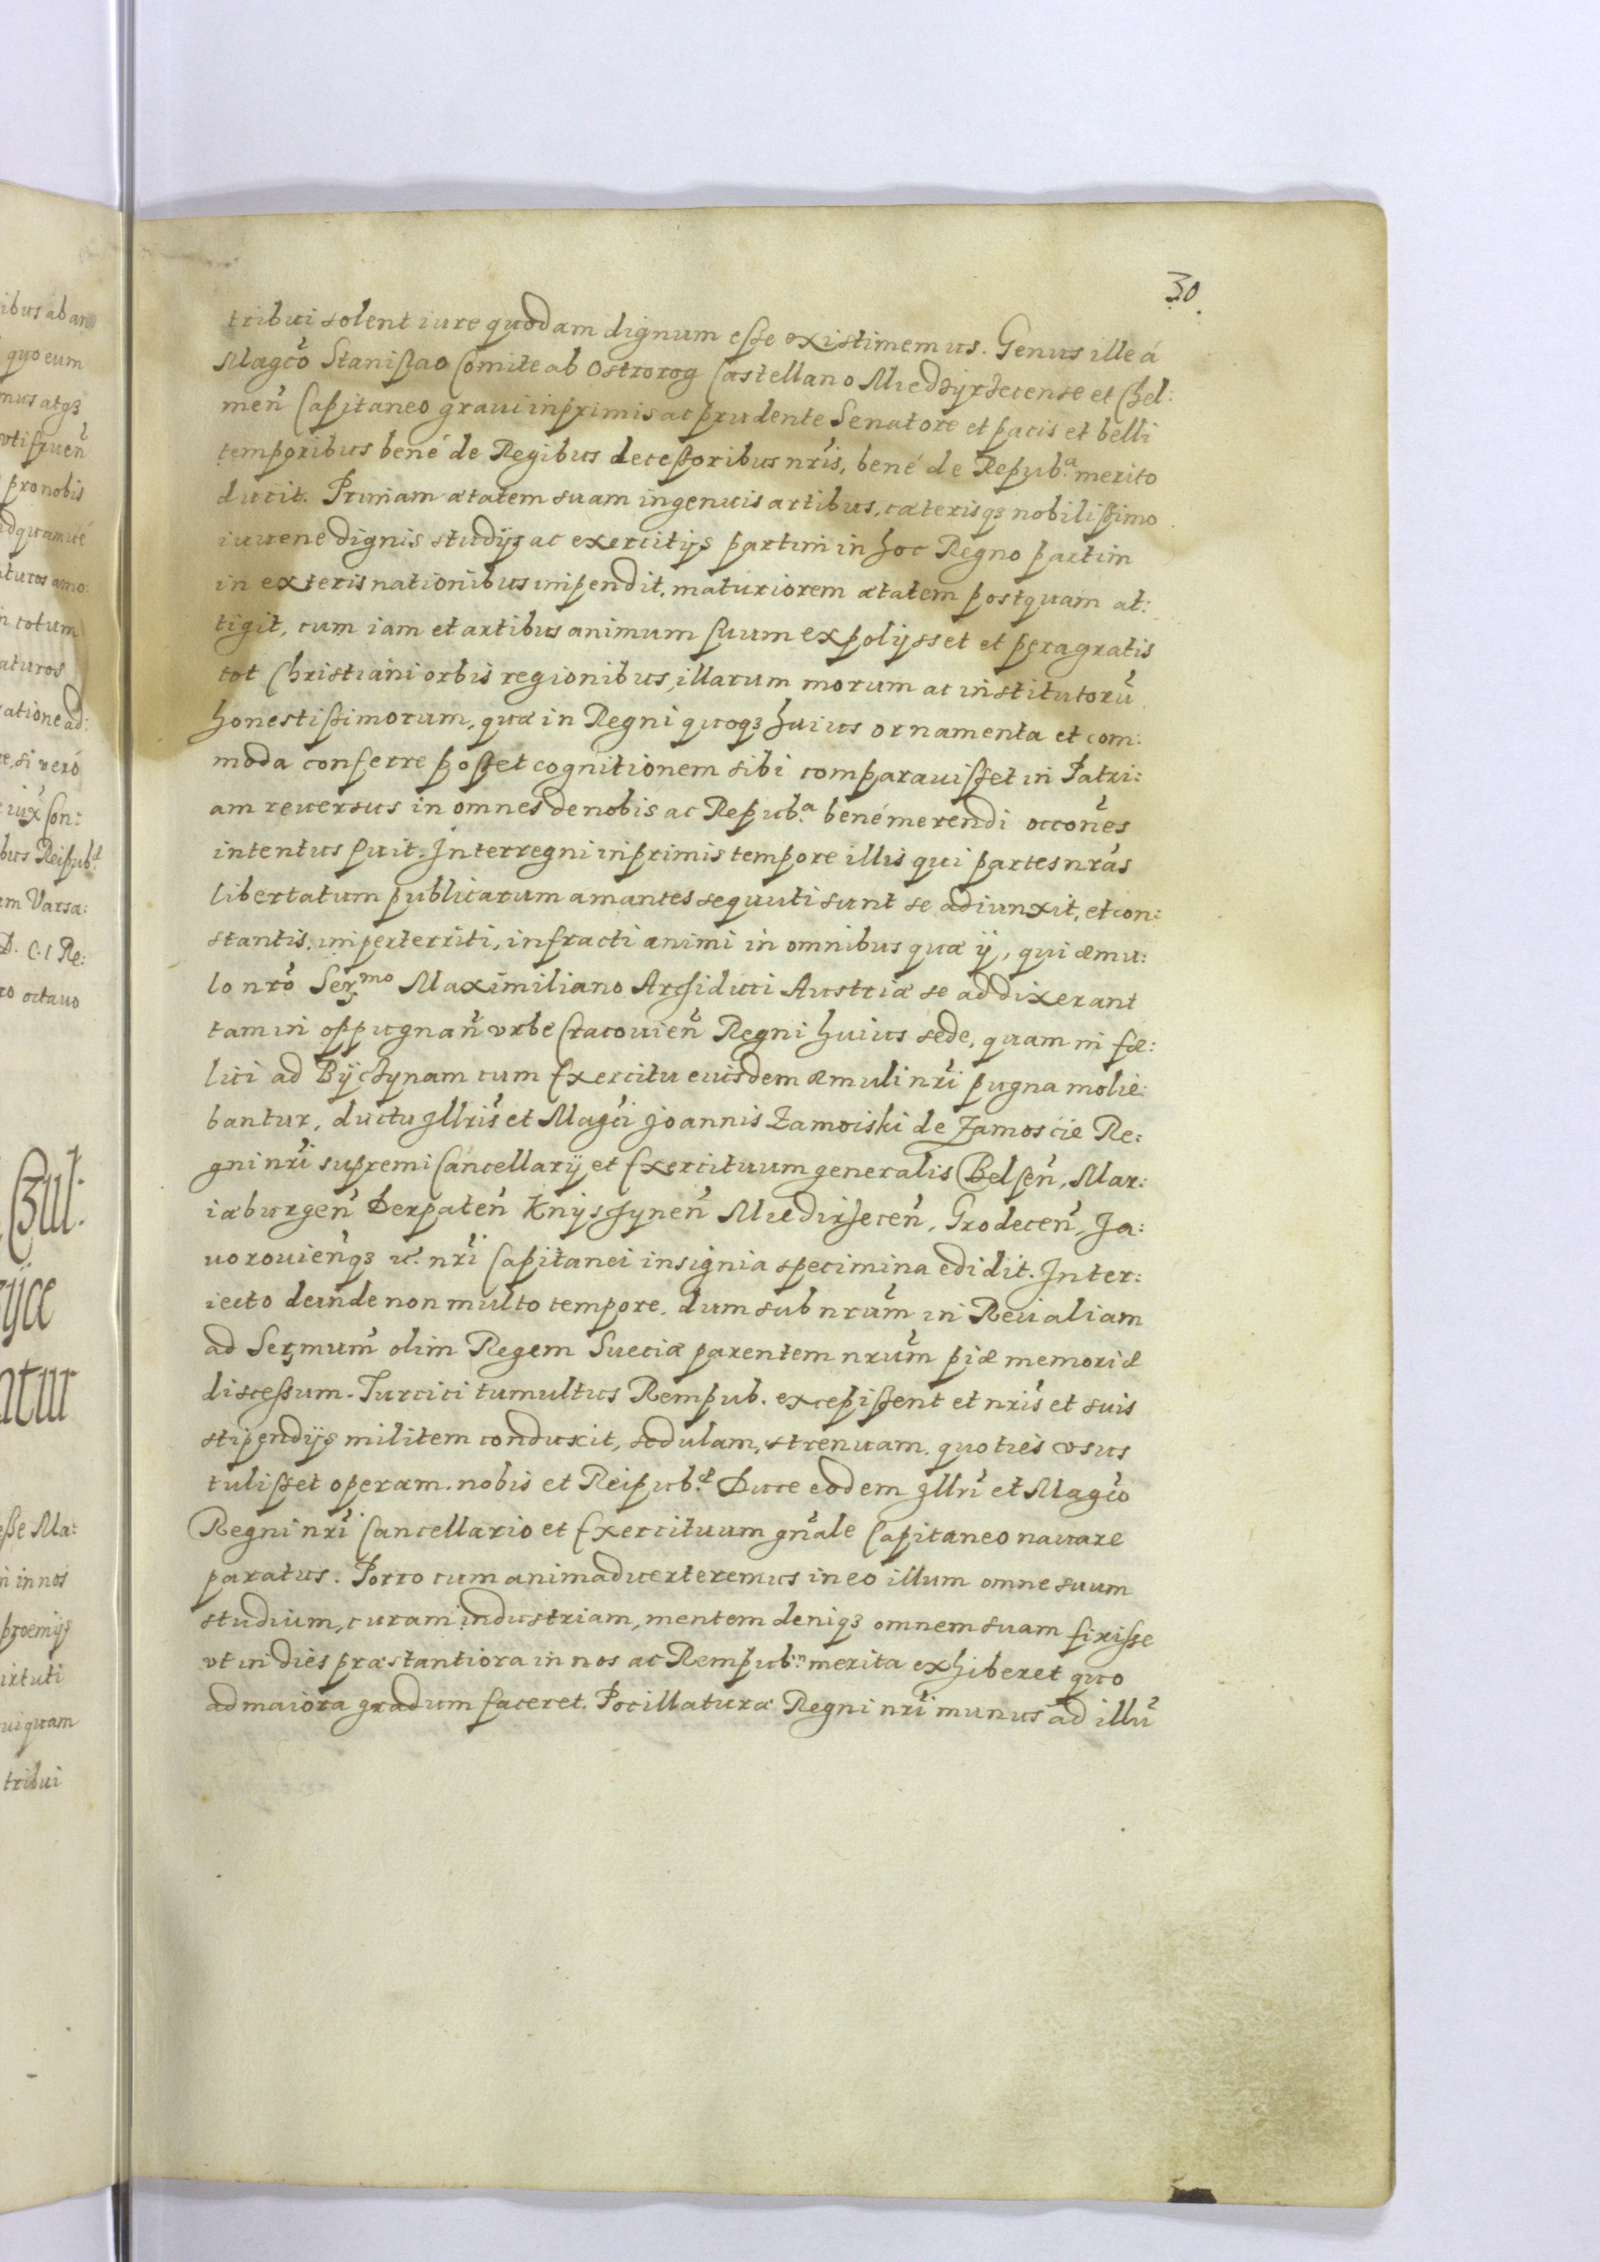 30.
tribui solent iure quodam dignum esse existimemus. Genus ille á
Magco Stanislao Comite ab Ostrorog Castellano Miedzyrzecense et Chel:
men Capitaneo graui inprimis ac prudente Senatore et pacis et belli
temporibus bené de Regibus decessoribus nris, bené de Repub.a merito
ducit. Primam ætatem suam ingenuis artibus, cæterisqz nobilissimo
iuuene dignis studijs ac exercitijs partim in hoc Regno partim
in exteris nationibus impendit, maturiorem ætatem postquam at:
tigit, cum iam et artibus animum suum expolijsset et peragratis
tot Christiani orbis regionibus, illarum morum ac institutorũ
honestissimorum, quæ in Regni quoqz huius ornamenta et com:
moda conferre posset cognitionem sibi comparauisset in Patri:
am reuersus in omnes de nobis ac Repub.a bené merendi occones
intentus fuit. Interregni inprimis tempore illis qui partes nras
libertatum publicarum amantes sequuti sunt se adiunxit, et con:
stantis, imperterriti, infracti animi in omnibus quæ ij, qui æmu:
lo nro Ser.mo Maximiliano Archiduci Austriæ se addixerant
tam in oppugnan vrbe Cracouien Regni huius sede, quam in fæ:
lici ad Bijchynam cum Exercitu eiusdem æmuli nri pugna molie:
bantur, ductu Illris et Magci Joannis Zamoiski de Zamoscie Re:
gni nri supremi Cancellarij et Exercituum generalis Belsen, Mar:
iæburgen Derpaten Knyschynen Miedirzecen, Grodecen, Ja:
uorouienqz &. nri Capitanei insignia specimina edidit. Inter:
iecto deinde non multo tempore, dum sub nrum in Reualiam
ad Sermum olim Regem Sueciæ parentem nrum piæ memoriæ
discessum. Turcici tumultus Rempub. excepissent et nris et suis
stipendijs militem conduxit, sedulam, strenuam, quoties vsus
tulisset operam. nobis et Reipub.æ Duce eodem Illri et Magco
Regni nri Cancellario et Exercituum gnale Capitaneo nauare
paratus. Porro cum animaduerteremus in eo illum omne suum
studium, curam industriam, mentem deniqz omnem suam fixisse
vt in dies præstantiora in nos ac Rempub.m merita exhiberet quo
ad maiora gradum faceret. Pocillaturæ Regni nri munus ad illũ
ibus ab an
quo eum
mus atqz
vti fruen
pro nobis
aturos amo:
in totum
aturos
ratione ad:
re, si veró
iux Con:
bus Reipub.æ
um Varsa:
D. C. I Re:
ro octauo
Cul:
ijce
atur
esse Ma:
in nos
præmijs
irtuti
uiquam
tribui